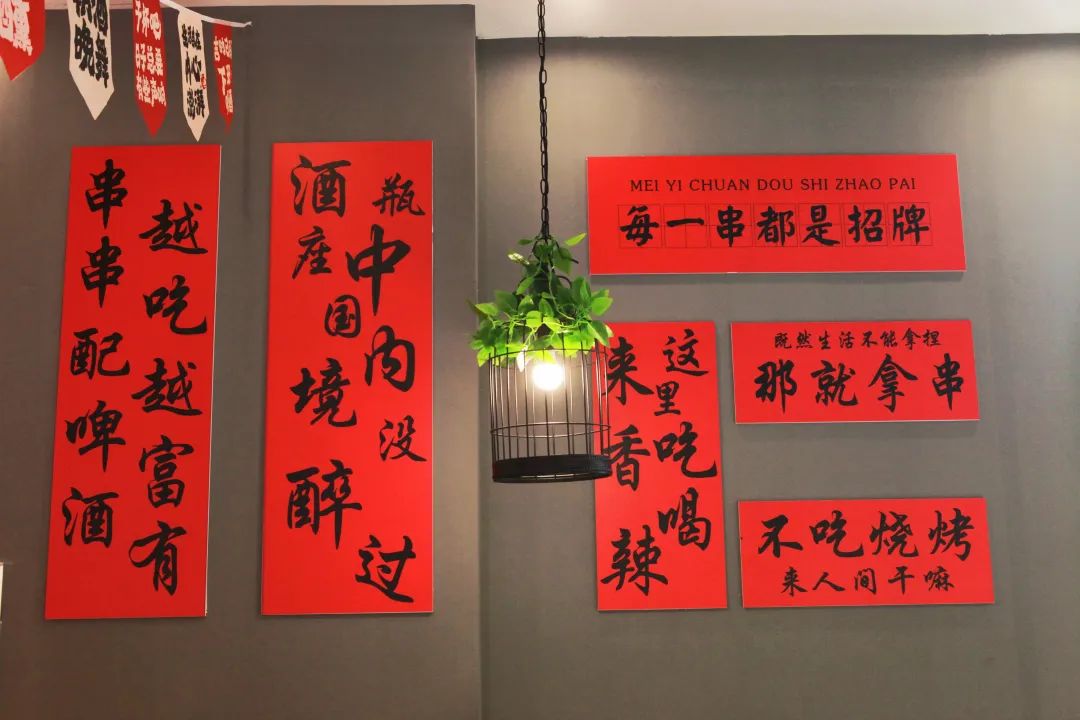 干杯吧
日子总要
有些声响
串串配啤酒
越吃越富有
酒瓶座
中国境内没醉过
MEI YI CHUAN DOU SHI ZHAO PAI
每一串都是招牌
来这里吃香喝辣
既然生活不能拿捏
那就拿串
不吃烧烤
来人间干嘛